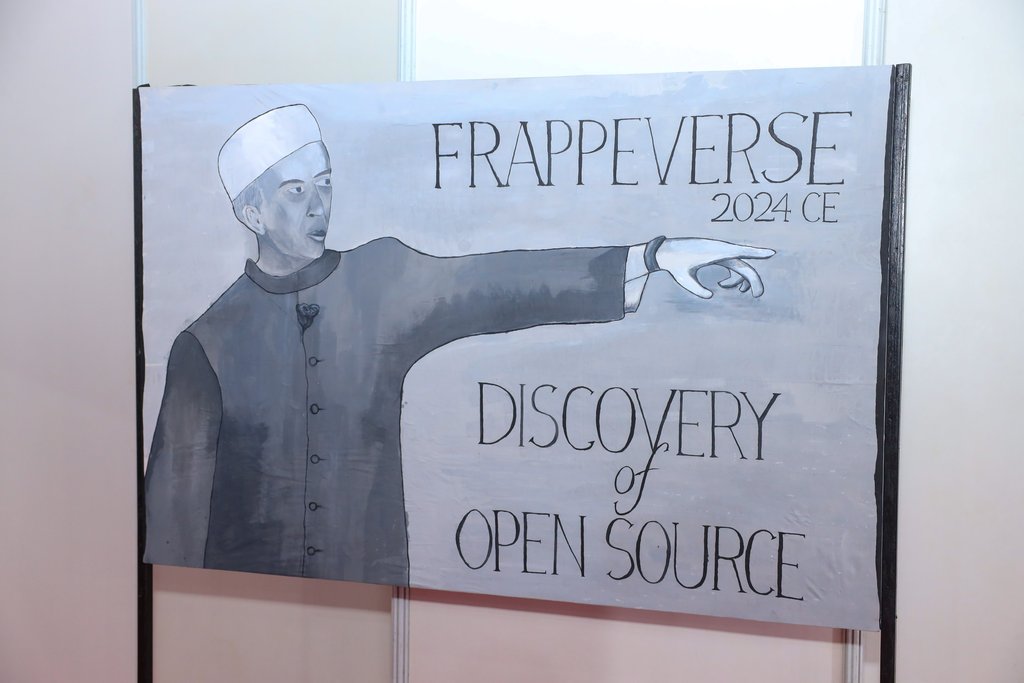 FRAPPEVERSE
2024 CE
DISCOVERY
of
OPEN SOURCE